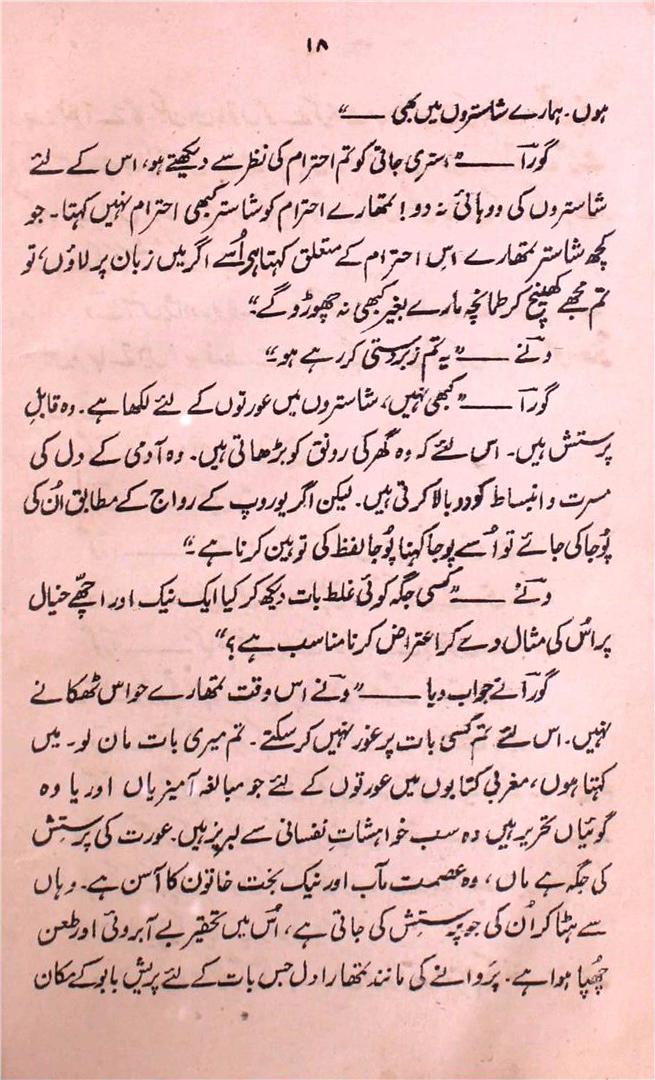 ۱۸
ہوں۔ ہمارے شاستروں میں بھی ——"
گورا —— "ستری جاتی کو تم احترام کی نظر سے دیکھتے ہو، اس کے لئے
شاستروں کی دوہائی نہ دو! تمھارے احترام کو شاستر کبھی احترام نہیں کہتا۔ جو
کچھ شاستر تمھارے اس احترام کے متعلق کہتا ہی اُسے اگر میں زبان پر لاؤں، تو
تم مجھے کھینچ کر طمانچہ مارے بغیر کبھی نہ چھوڑو گے۔"
ونے —— "یہ تم زبردستی کر رہے ہو۔"
گورا —— "کبھی نہیں، شاستروں میں عورتوں کے لئے لکھا ہے۔ وہ قابلِ
پرستش ہیں۔ اس لئے کہ وہ گھر کی رونق کو بڑھاتی ہیں۔ وہ آدمی کے دل کی
مسرت و انبساط کو دوبالا کرتی ہیں۔ لیکن اگر یوروپ کے رواج کے مطابق اُن کی
پُوجا کی جائے تو اُسے پوجا کہنا پُوجا لفظ کی توہین کرنا ہے۔"
ونے —— "کسی جگہ کوئی غلط بات دیکھ کر کیا ایک نیک اور اچھّے خیال
پر اُس کی مثال دے کر اعتراض کرنا مناسب ہے؟"
گورا نے جواب دیا —— "ونے اس وقت تمھارے حواس ٹھکانے
نہیں۔ اس لئے تم کسی بات پر غور نہیں کر سکتے۔ تم میری بات مان لو۔ میں
کہتا ہوں، مغربی کتابوں میں عورتوں کے لئے جو مبالغہ آمیزیاں اور یا وہ
گوئیاں تحریر ہیں وہ سب خواہشاتِ نفسانی سے لبریز ہیں۔ عورت کی پرستش
کی جگہ ہے ماں، وہ عصمت مآب اور نیک بخت خاتون کا آسن ہے۔ وہاں
سے ہٹا کر اُن کی جو پرستش کی جاتی ہے، اُس میں تحقیر بے آبروئی اور طعن
چھُپا ہوا ہے۔ پروانے کی مانند تمھارا دل جس بات کے لئے پریش بابو کے مکان